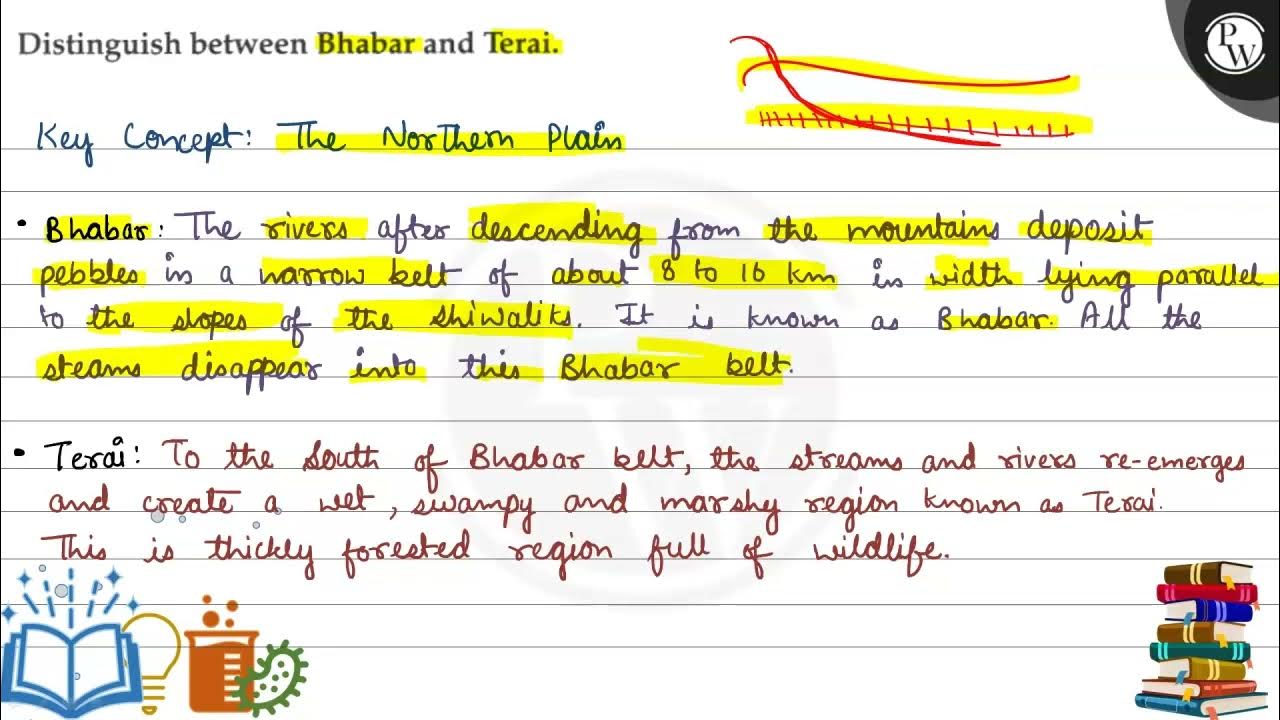 Distinguish between Bhabar and Terai.
PW
Key Concept: The Northern Plain
• Bhabar: The rivers after descending from the mountains deposit
pebbles in a narrow belt of about 8 to 16 km in width lying parallel
to the slopes of the Shiwaliks. It is known as Bhabar. All the
steams disappear into this Bhabar belt.
• Terai: To the South of Bhabar belt, the streams and rivers re-emerges
and create a wet, swampy and marshy region known as Terai.
This is thickly forested region full of wildlife.